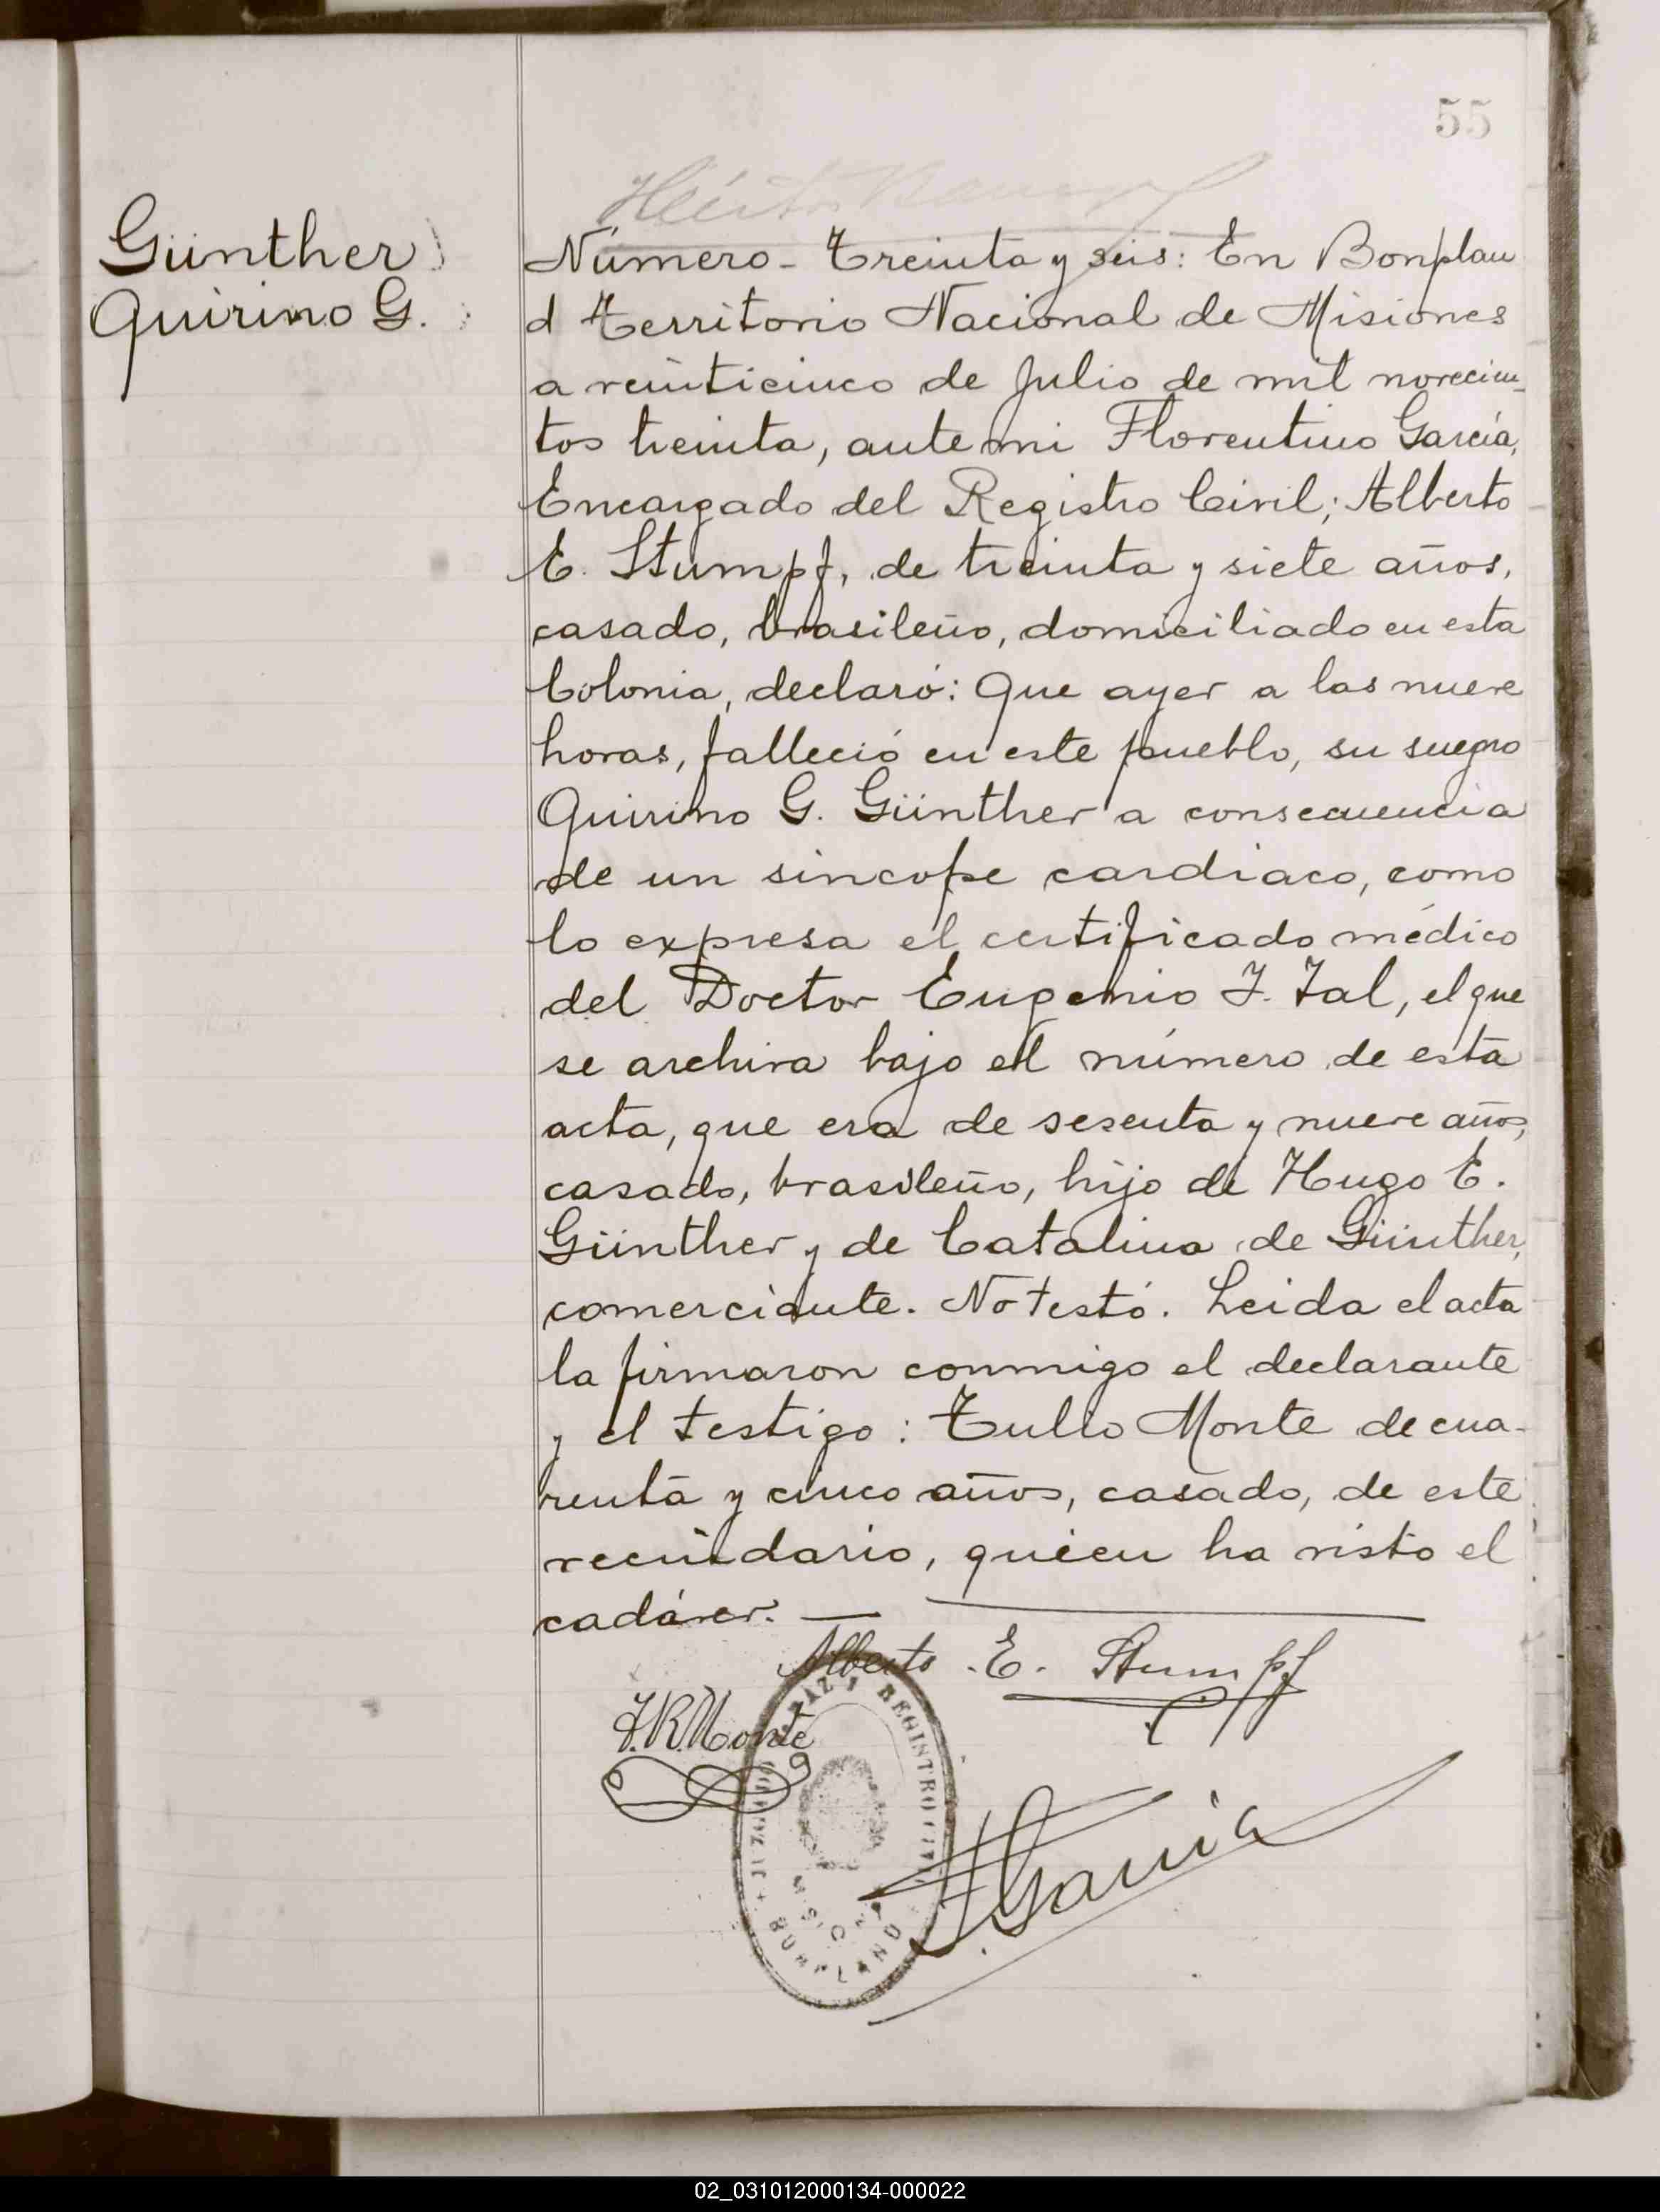 55
Günther
Quirino G.
Número - Treinta y seis: En Bonplan
d Territorio Nacional de Misiones
a veinticinco de Julio de mil novecien-
tos treinta, ante mi Florentino García,
Encargado del Registro Civil; Alberto
E. Stumpf, de treinta y siete años,
casado, brasileño, domiciliado en esta
Colonia, declaró: Que ayer a las nueve
horas, falleció en este pueblo, su suegro
Quirino G. Günther a consecuencia
de un sincope cardiaco, como
lo expresa el certificado médico
del Doctor Eugenio F. Fal, el que
se archiva bajo el número de esta
acta, que era de sesenta y nueve años,
casado, brasileño, hijo de Hugo E.
Günther y de Catalina de Günther,
comerciante. No testó. Leida el acta
la firmaron conmigo el declarante
y el testigo: Tulio Monte de cua-
renta y cinco años, casado, de este
vecindario, quien ha visto el
cadáver.
Alberto E. Stumpf
Monte
PAZ Y REGISTRO CIVIL
BONPLAND
F. Garcia
02_031012000134-000022